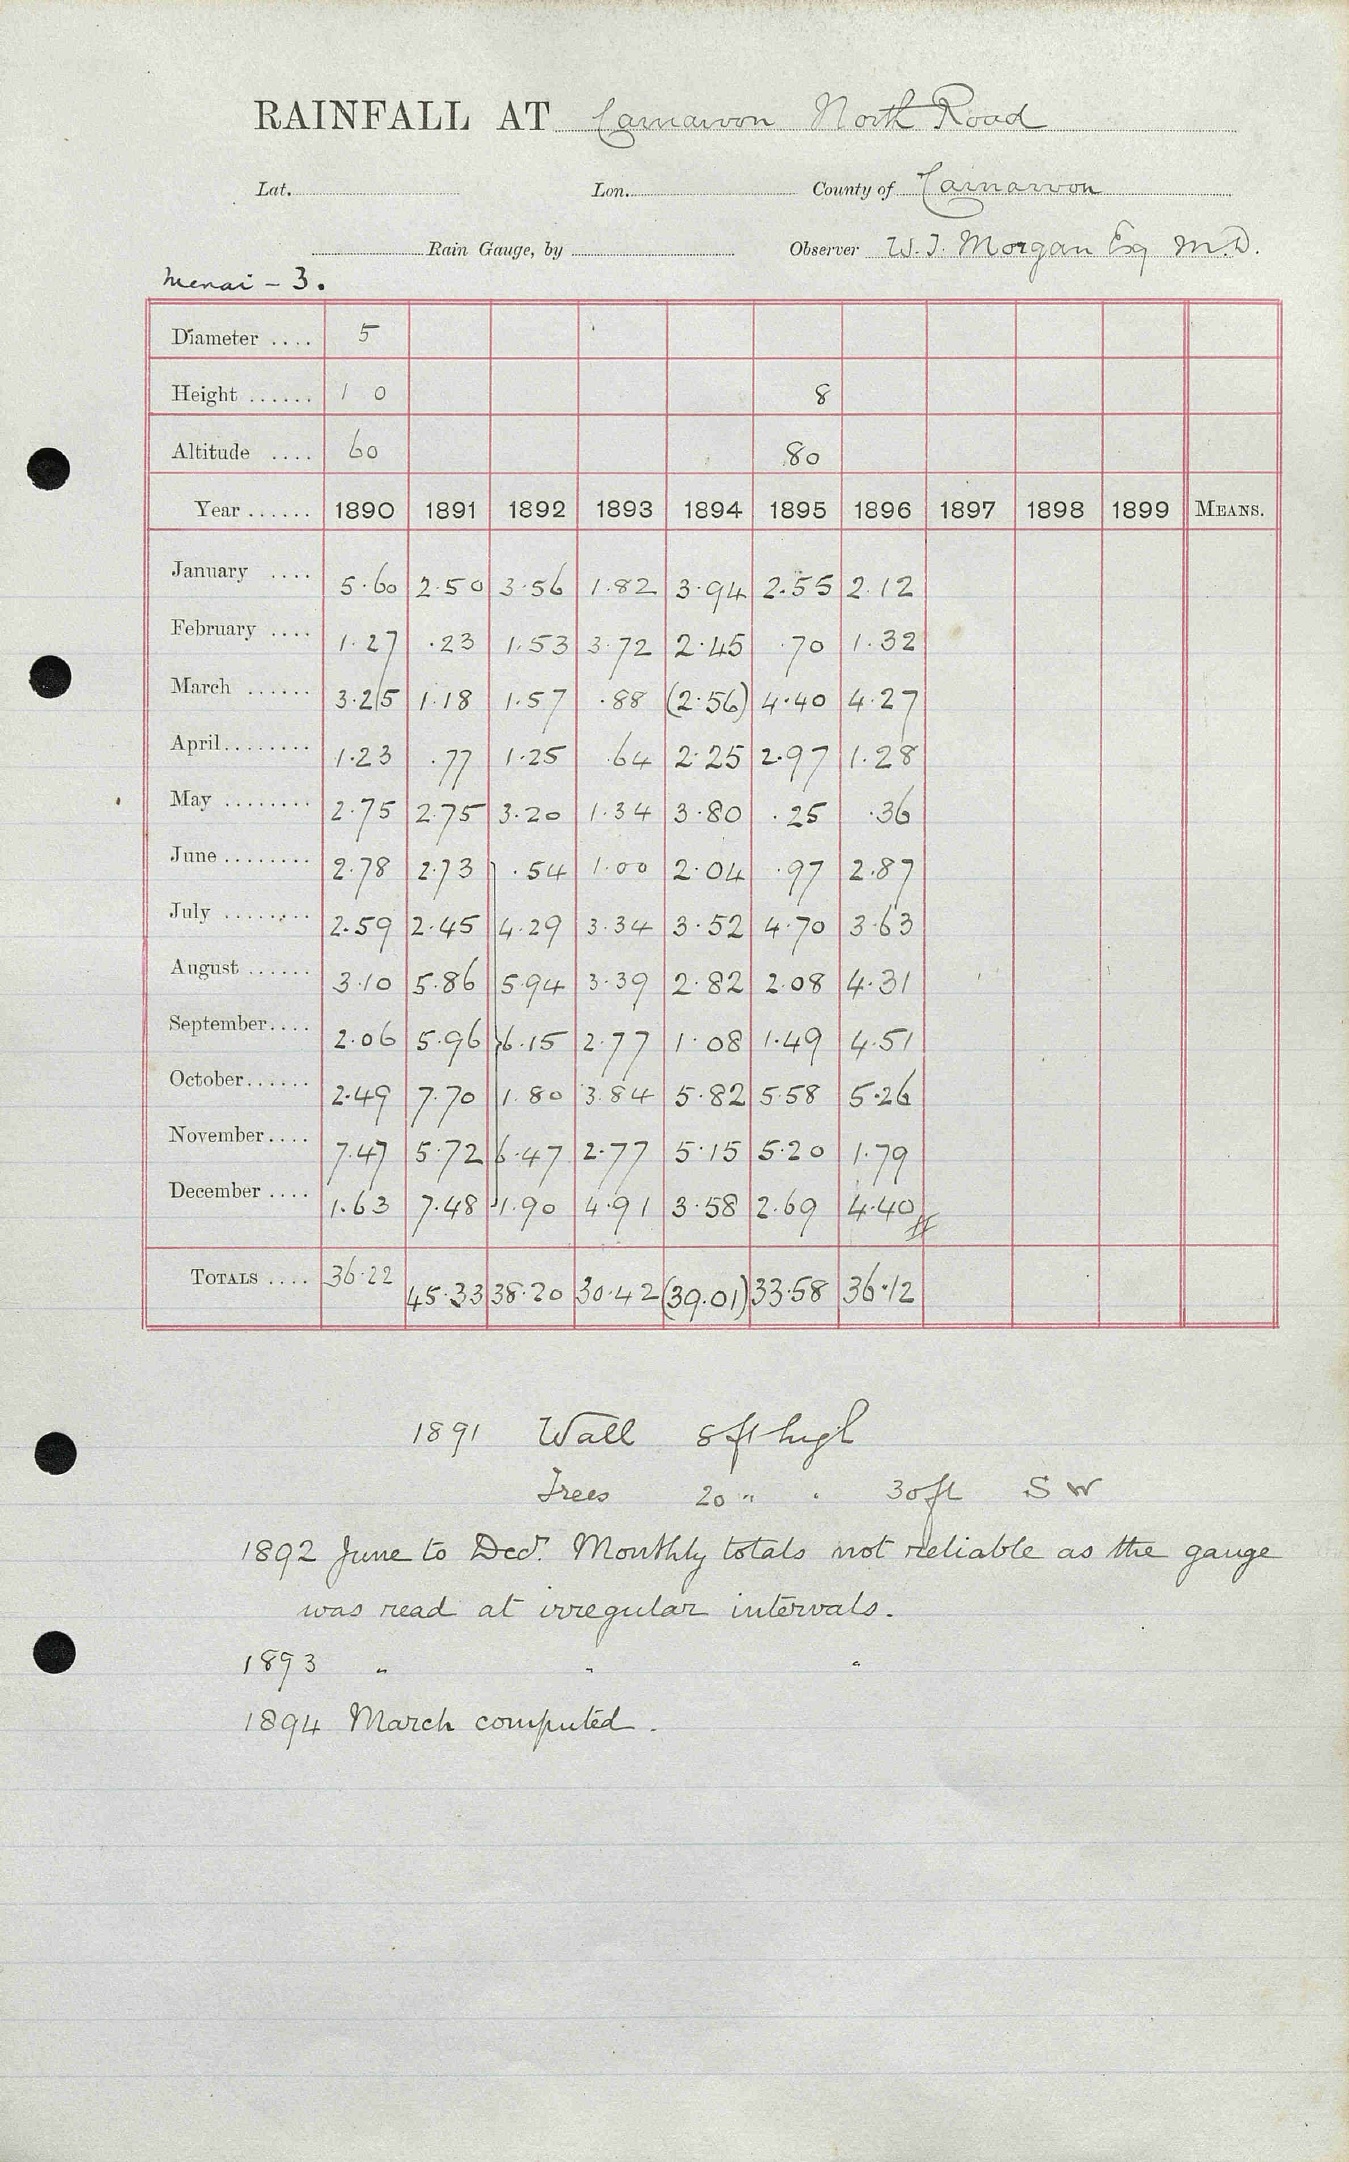 RAINFALL AT Carnarvon North Road
Lat. Lon. County of Carnarvon
Rain Gauge, by Observer W.J. Morgan Esq M.D.
Menai - 3.
Diameter .... 5
Height ...... 1 0 8
Altitude .... 60 80
Year ...... 1890 1891 1892 1893 1894 1895 1896 1897 1898 1899 MEANS.
January .... 5.60 2.50 3.56 1.82 3.94 2.55 2.12
February .... 1.27 .23 1.53 3.72 2.45 .70 1.32
March ...... 3.25 1.18 1.57 .88 (2.56) 4.40 4.27
April........ 1.23 .77 1.25 .64 2.25 2.97 1.28
May ........ 2.75 2.75 3.20 1.34 3.80 .25 .36
June ........ 2.78 2.73 .54 1.00 2.04 .97 2.87
July ........ 2.59 2.45 4.29 3.34 3.52 4.70 3.63
August ...... 3.10 5.86 5.94 3.39 2.82 2.08 4.31
September.... 2.06 5.96 6.15 2.77 1.08 1.49 4.51
October...... 2.49 7.70 1.80 3.84 5.82 5.58 5.26
November.... 7.47 5.72 6.47 2.77 5.15 5.20 1.79
December .... 1.63 7.48 1.90 4.91 3.58 2.69 4.40
TOTALS .... 36.22 45.33 38.20 30.42 (39.01) 33.58 36.12
1891 Wall 8ft high
Trees 20 " " 30ft SW
1892 June to Decr. Monthly totals not reliable as the gauge
was read at irregular intervals.
1893 " " "
1894 March computed.